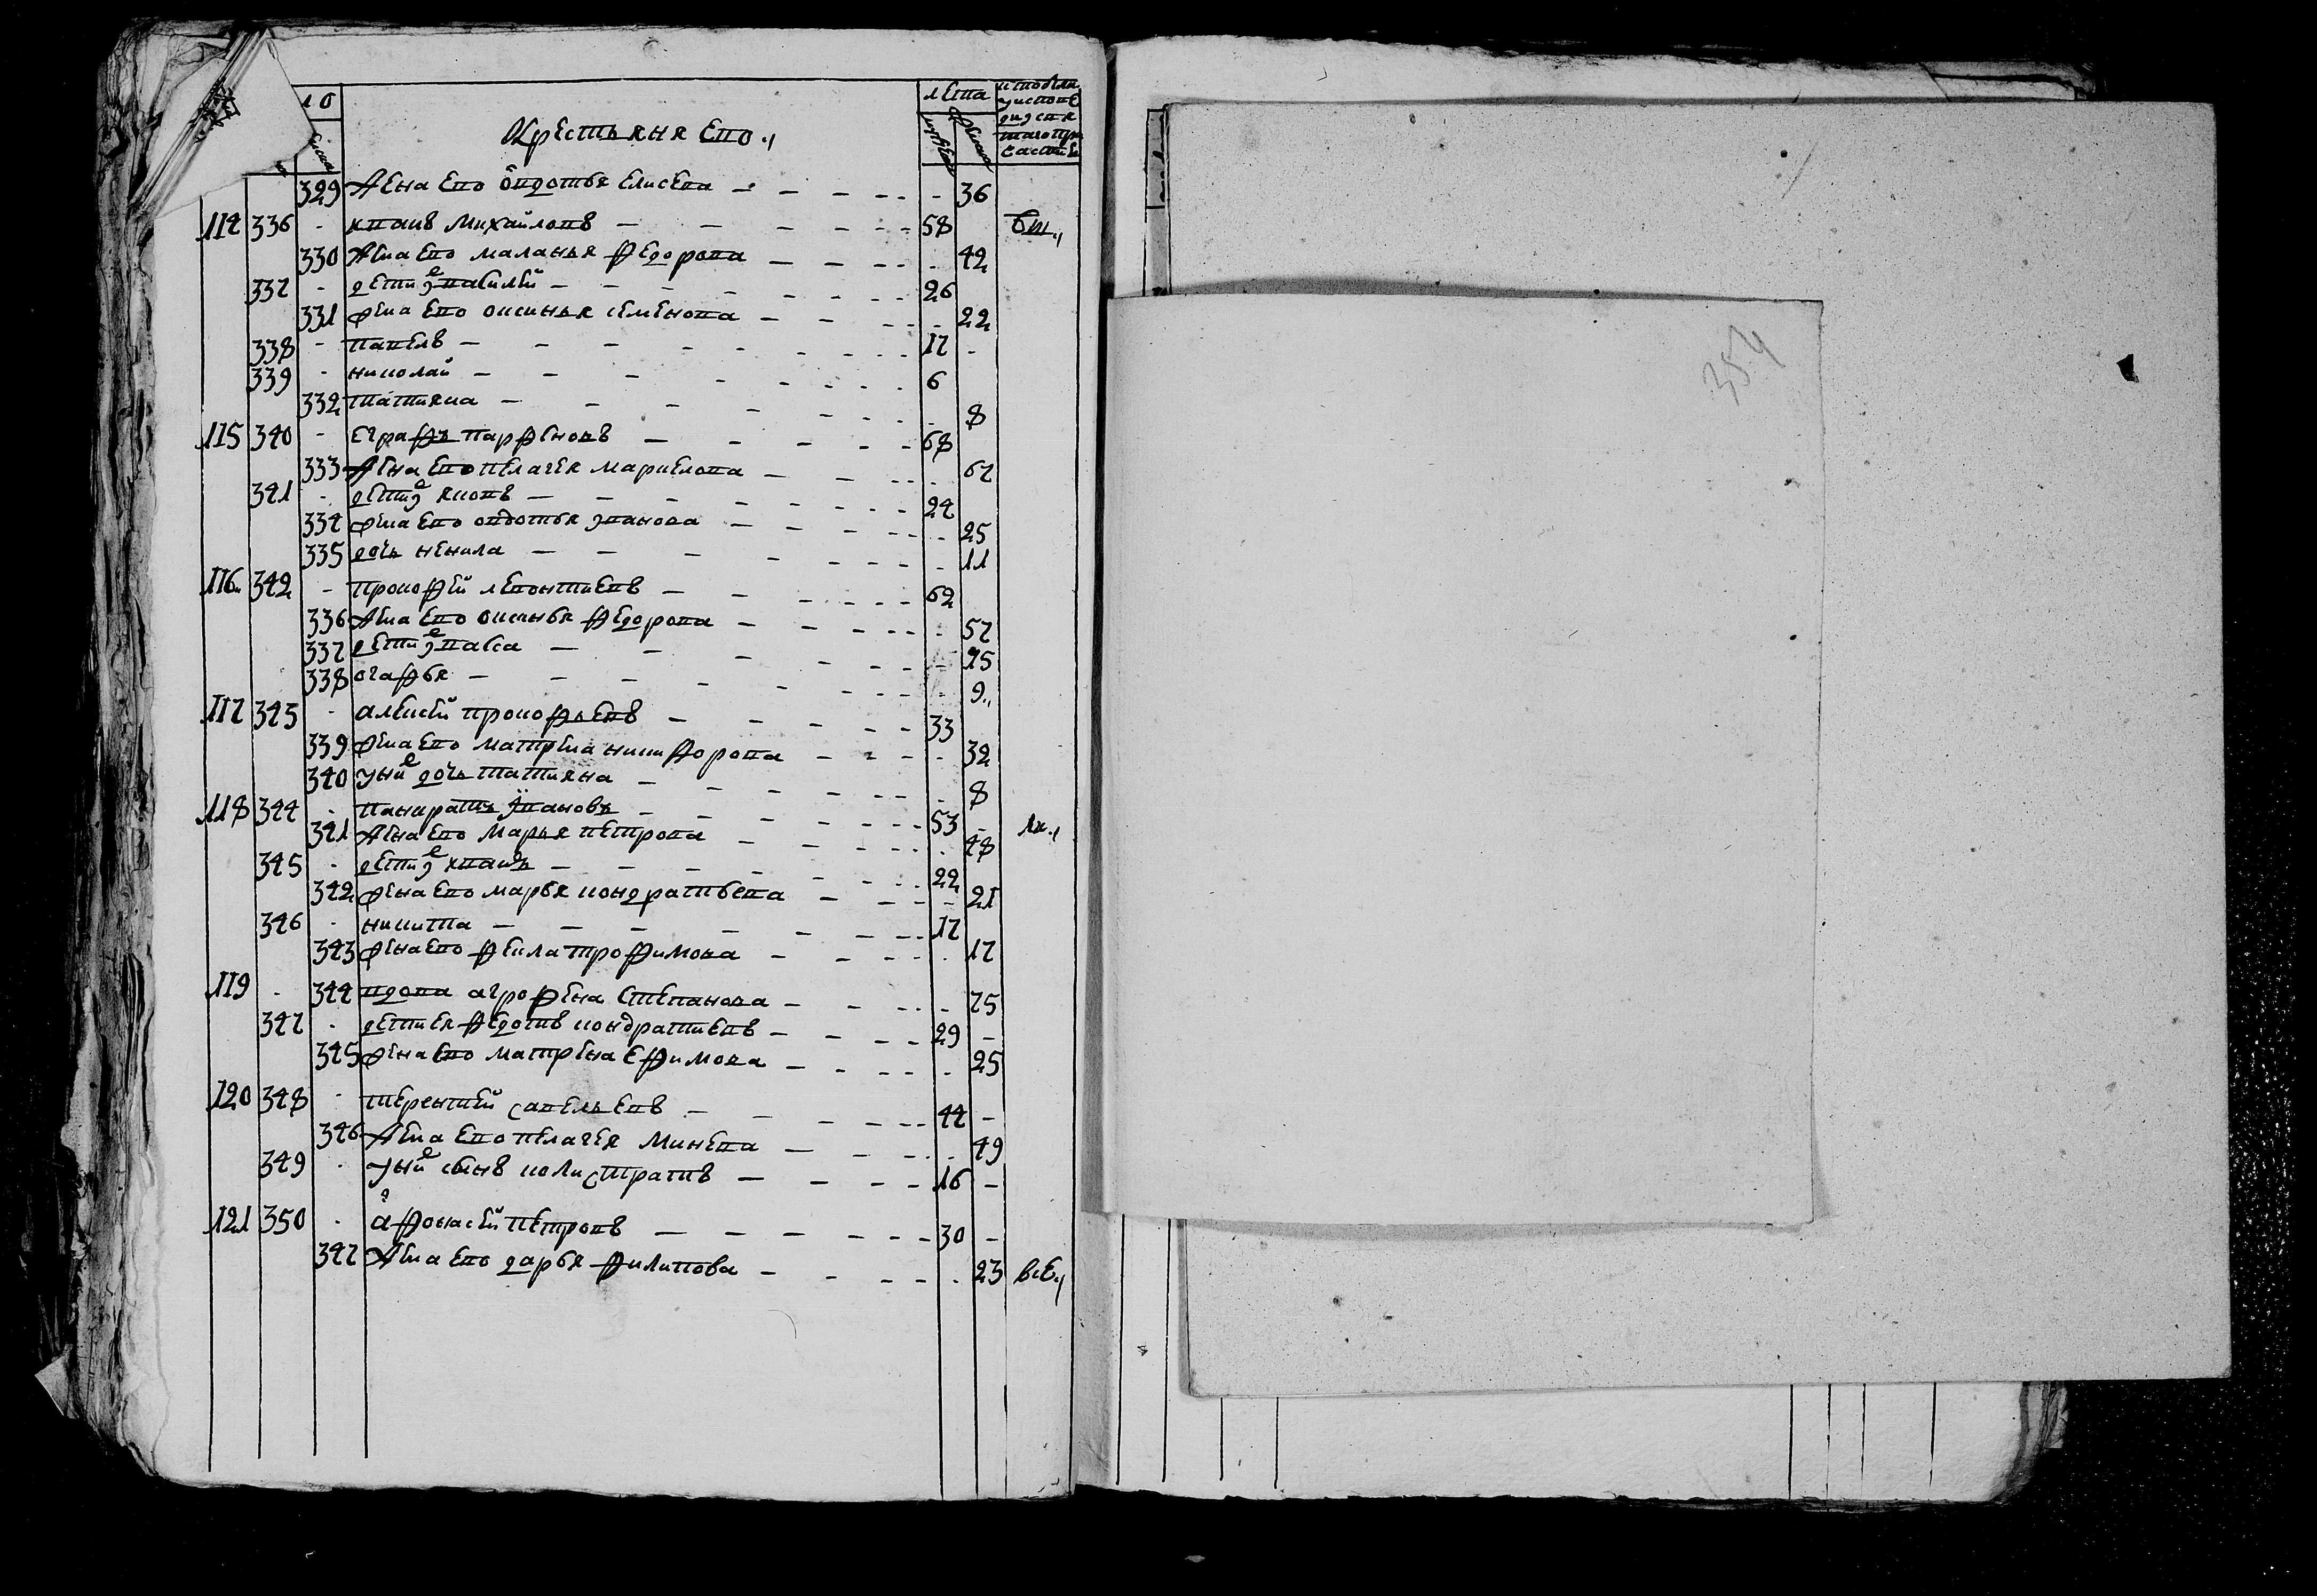 ло
лета
Крестьяня ево
329 жена ево овдотья елисева 36
114 336 иванъ михайловъ 58
330 жена ево маланья федорова 42
337 дети василей 26
331 жена ево оксинья семенова 22
338 павелъ 17
339 николай 6
332 татияна 8
115 340 парфеновъ 68
333 жена ево пелагея маркелова 67
341 дети яковъ 24
334 жена ево овдотья иванова 25
335 дочь ненила 11
116 342 прокофей леонтиевъ 62
336 жена ево оксинья федорова 57
337 дети 15
338 огафья 9
117 343 алексей прокофьевъ 33
339 жена ево матрена никифорова 32
340 у них дочь татияна 8
118 344 панкратъ ивановъ 53
341 жена ево марья петрова 48
345 дети иванъ 22
342 жена ево марья кондратьева 21
346 никита 17
343 жена ево фекла трофимова 17
119 344 вдова агрофена степанова 75
347 дети ея федотъ кондратиевъ 29
345 жена ево матрена ефимова 25
120 348 терентей савельевъ 44
346 жена ево пелагея минева 49
349 у них сынъ колистратъ 16
121 350 афонасей петровъ 30
347 жена ево дарья филипова 23 все
354